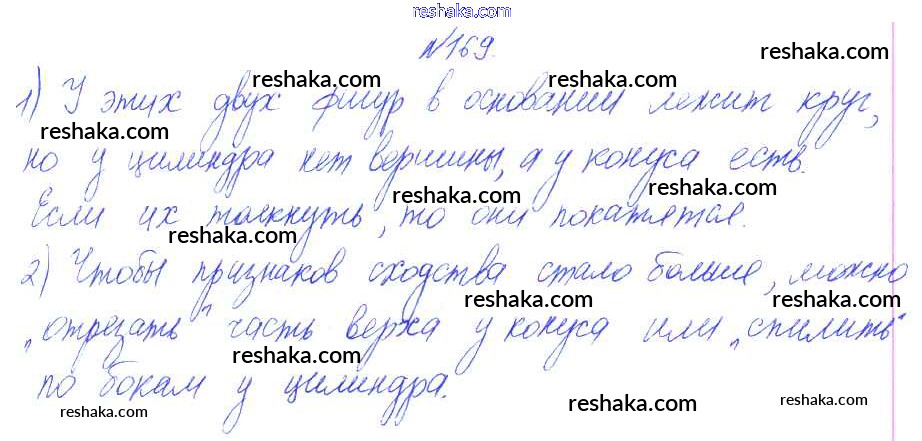 reshaka.com
№169.
reshaka.com
reshaka.com reshaka.com
1) У этих двух фигур в основании лежит круг,
reshaka.com
но у цилиндра нет вершины, а у конуса есть.
reshaka.com reshaka.com
Если их толкнуть, то они покатятся.
reshaka.com
2) Чтобы признаков сходства стало больше, можно
reshaka.com reshaka.com
„отрезать" часть верха у конуса или „спилить"
reshaka.com
по бокам у цилиндра.
reshaka.com reshaka.com reshaka.com